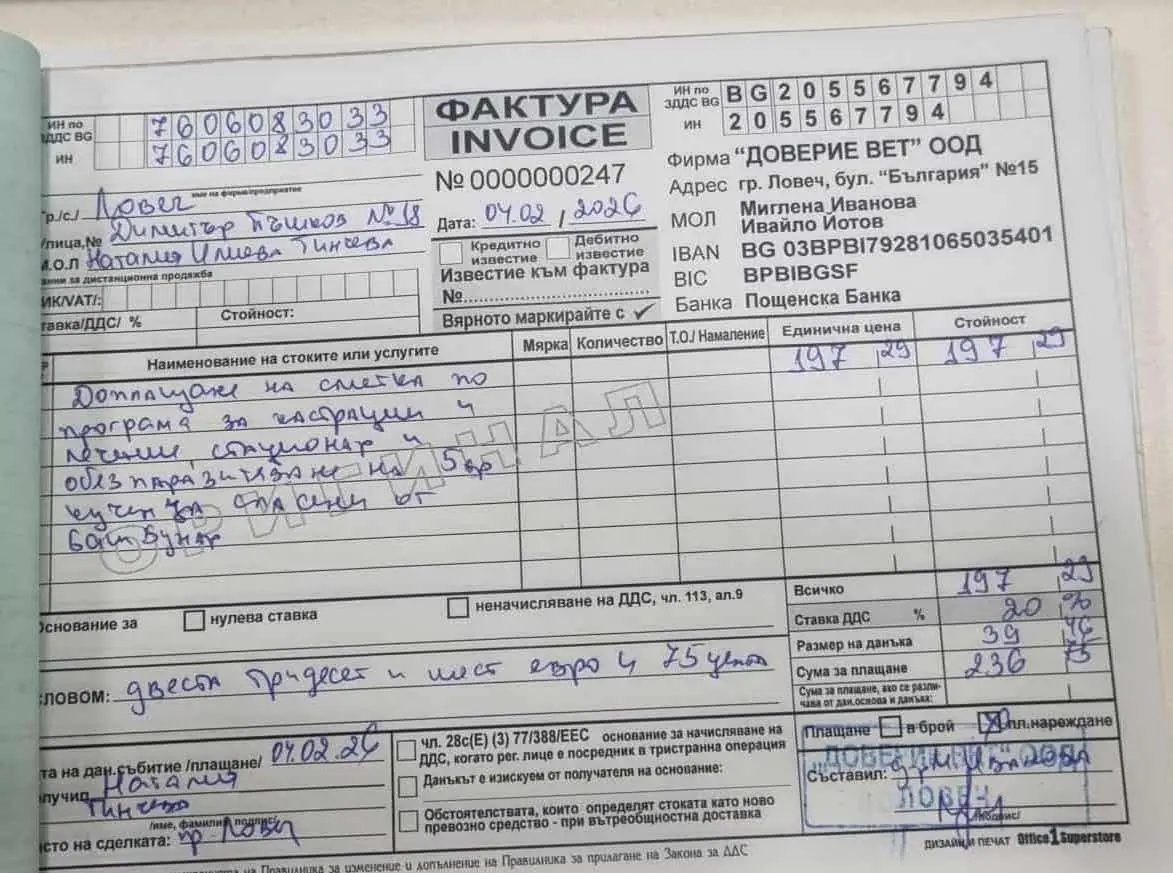 ИН по
ЗДДС BG 7606083033
ИН 7606083033
име на фирма/предприятие
гр./с./ Ловеч
улица,№ Димитър Пъшков №18
М.О.Л Наталия Илиева Тинчева
данни за дистанционна продажба
ИК/VAT/:
ставка/ДДС/ %
Стойност:
ФАКТУРА
INVOICE
№ 0000000247
Дата: 04.02 / 2026
Кредитно известие
Дебитно известие
Известие към фактура
№
Вярното маркирайте с ✓
ИН по ЗДДС BG BG205567794
ИН 205567794
Фирма "ДОВЕРИЕ ВЕТ" ООД
Адрес гр. Ловеч, бул. "България" №15
МОЛ Миглена Иванова
Ивайло Йотов
IBAN BG 03BPBI79281065035401
BIC BPBIBGSF
Банка Пощенска Банка
Наименование на стоките или услугите Мярка Количество Т.О./ Намаление Единична цена Стойност
197 29 197 29
Доплащане на сметка по
програма за кастрации и
лечение, стационар и
обезпаразитяване на 5бр
кучета спасени от
Баш Бунар
ОРИГИНАЛ
Основание за нулева ставка неначисляване на ДДС, чл. 113, ал.9
Всичко 197 29
Ставка ДДС % 20 %
Размер на данъка 39 46
Сума за плащане 236 75
Сума за плащане, ако се различава от дан.основа и данъка:
СЛОВОМ: двеста тридесет и шест евро и 75 цента
Плащане в брой пл.нареждане
Съставил: д-р М. Иванова
/подпис/
"ДОВЕРИЕ ВЕТ" ООД
ЛОВЕЧ
дата на дан.събитие /плащане/ 04.02.26
Получил Наталия
Тинчева
/име, фамилия, подпис/
място на сделката: гр. Ловеч
чл. 28с(Е) (3) 77/388/ЕЕС основание за начисляване на
ДДС, когато рег. лице е посредник в тристранна операция
Данъкът е изискуем от получателя на основание:
Обстоятелствата, които определят стоката като ново
превозно средство - при вътреобщностна доставка
на Правилника за изменение и допълнение на Правилника за прилагане на Закона за ДДС
ДИЗАЙН И ПЕЧАТ Office 1 Superstore